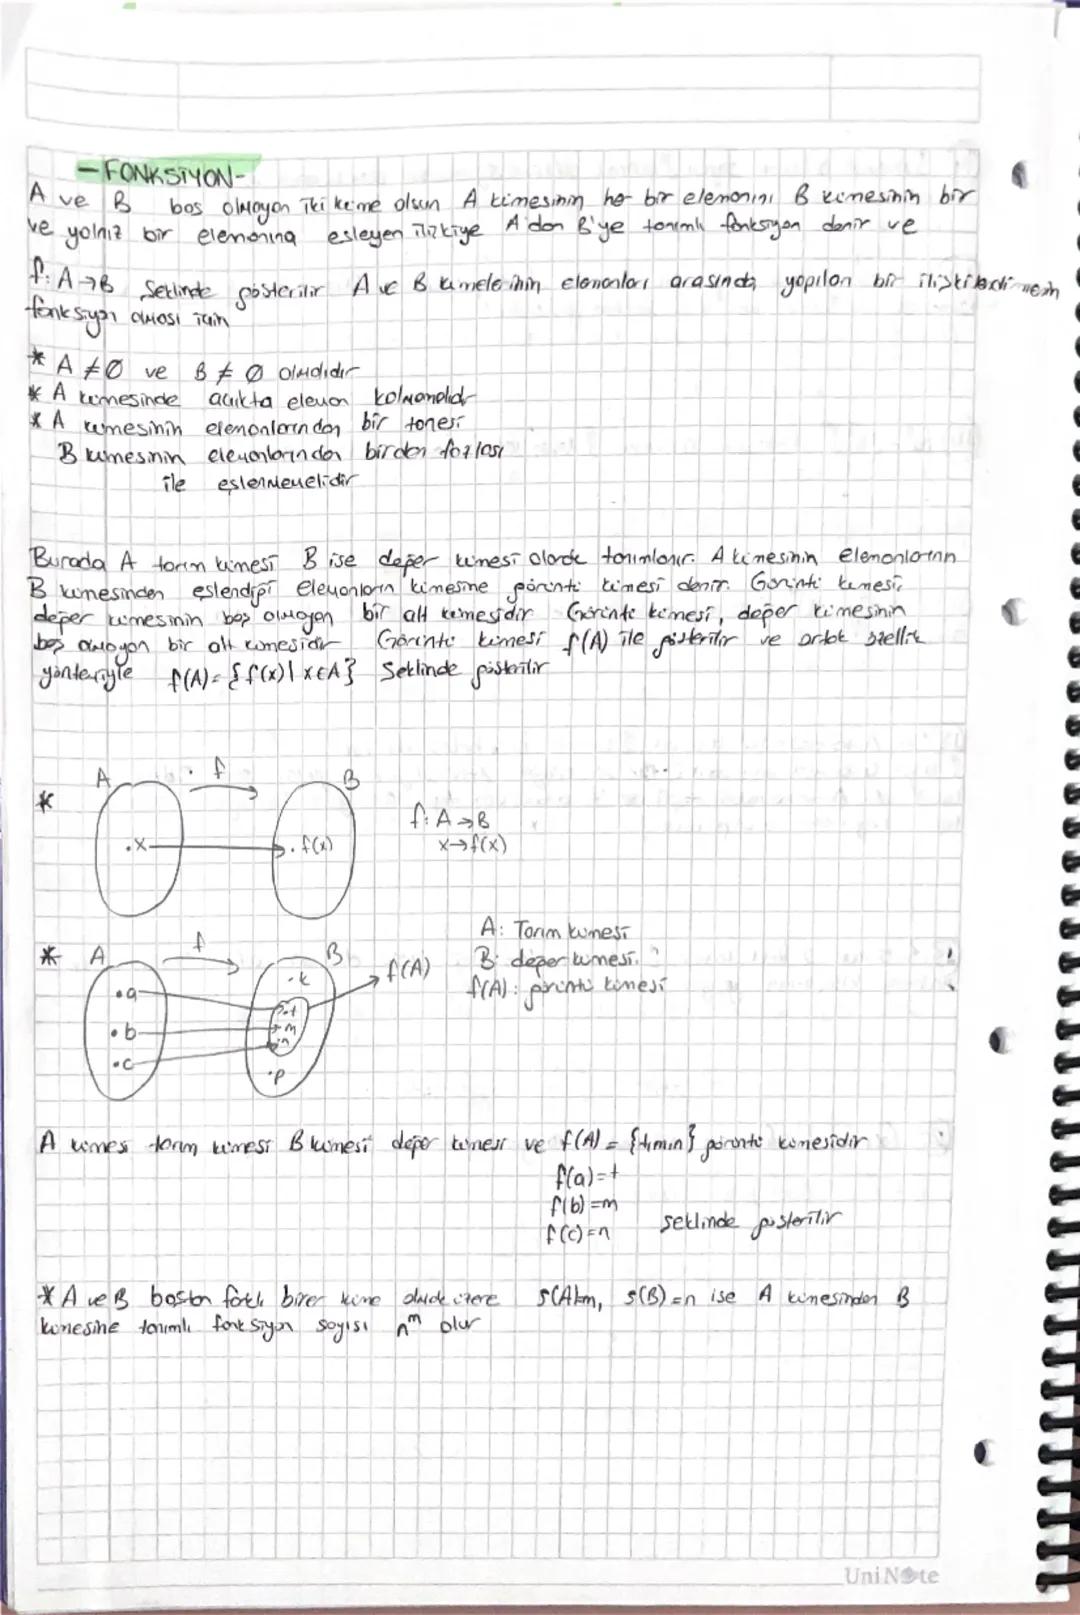 -FONKSİYON-
A ve B boş olmayan iki küme olsun A kümesinin her bir elemanını B kümesinin bir
ve yalnız bir elemanına eşleyen ilişkiye A'dan B'ye tanımlı fonksiyon denir ve
f: A→B şeklinde gösterilir A ve B kümelerinin elemanları arasında yapılan bir ilişkilendirmenin
fonksiyon olması için
* A ≠ Ø ve B ≠ Ø olmalıdır
* A kümesinde açıkta eleman kalmamalıdır
* A kümesinin elemanlarından bir tanesi
B kümesinin elemanlarından birden fazlası
ile eşlenmemelidir
Burada A tanım kümesi B ise değer kümesi olarak tanımlanır. A kümesinin elemanlarının
B kümesinden eşlendiği elemanların kümesine görüntü kümesi denir. Görüntü kümesi,
değer kümesinin boş olmayan bir alt kümesidir Görüntü kümesi, değer kümesinin
boş olmayan bir alt kümesidir Görüntü kümesi f(A) ile gösterilir ve ortak özellik
yöntemiyle f(A) = {f(x) | x∈A} şeklinde gösterilir
* A f B
.x . f(x)
f: A→B
x→f(x)
* A f B
.a .b .c
.k .t .m .n .p
f(A)
A: Tanım kümesi
B: değer kümesi
f(A): görüntü kümesi
A kümesi tanım kümesi B kümesi değer kümesi ve f(A) = {t,m,n} görüntü kümesidir
f(a)=t
f(b)=m
f(c)=n şeklinde gösterilir
* A ve B boştan farklı birer küme olmak üzere s(A)=m, s(B)=n ise A kümesinden B
kümesine tanımlı fonksiyon sayısı nᵐ olur
UniNote